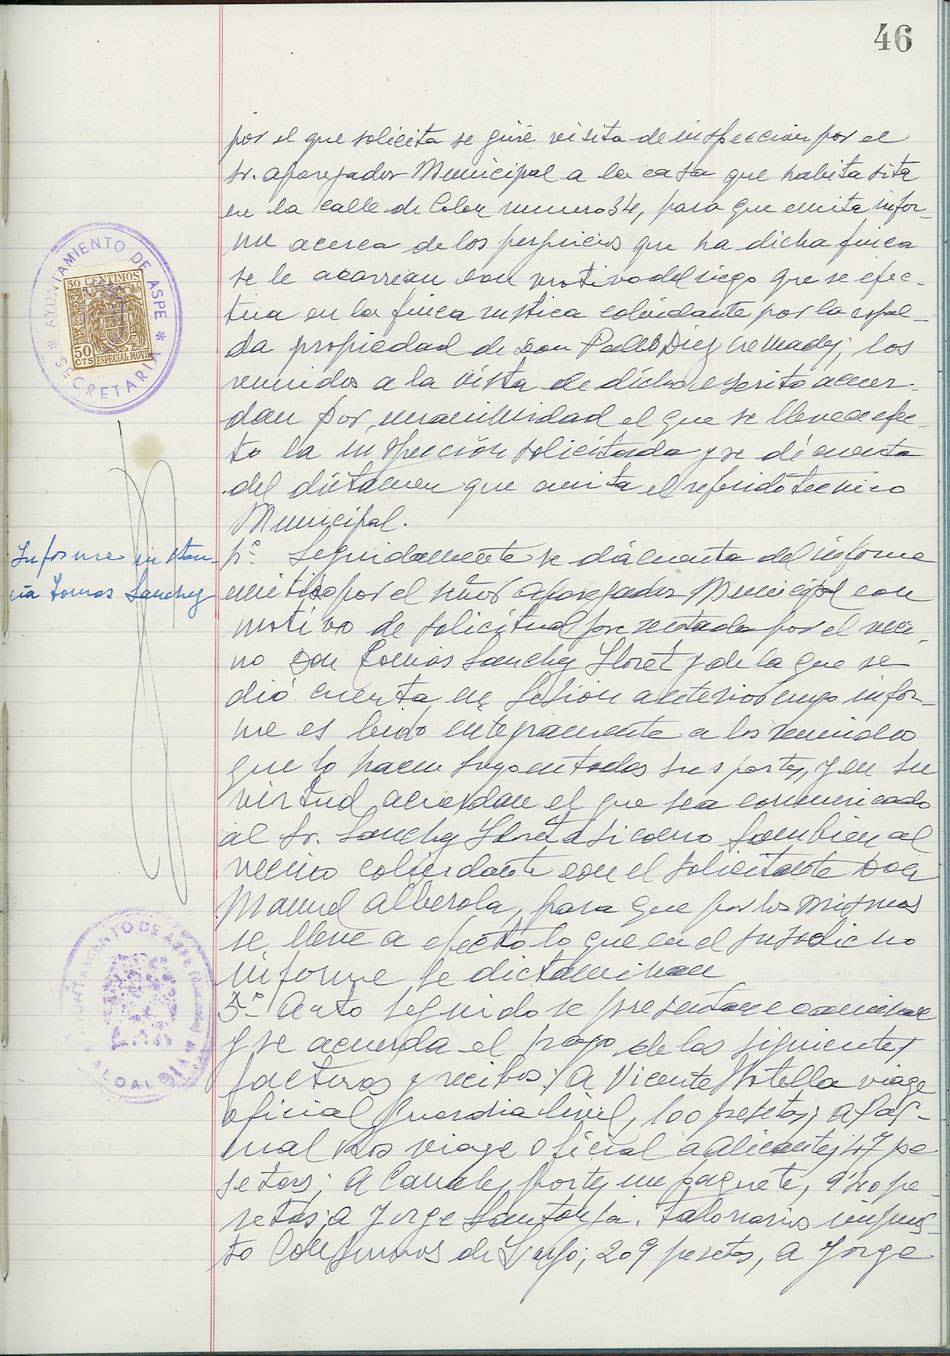 46
por el que solicita se gire visita de inspeccion por el
Sr. aparejador Municipal a la casa que habita sita
en la calle de Colon numero 34, para que emita infor-
me acerca de los perjuicios que ha dicha finca
se le acarrean con motivo del riego que se efec-
tua en la finca rustica colindante por la espal-
da propiedad de Don Pablo Diez Cremades; los
reunidos a la vista de dicho escrito acuer-
dan por unanimidad el que se lleve a efec-
to la inspección solicitada y se dé cuenta
del dictamen que emita el referido tecnico
Municipal.
Seguidamente se dá cuenta del informe
emitido por el señor aparejador Municipal con
motivo de solicitud presentada por el veci-
no Don Tomás Sanchez Lloret y de la que se
dió cuenta en sesión anterior cuyo infor-
me es leido integramente a los reunidos
que lo hacen suyo en todas sus partes, y en su
virtud acuerdan el que sea comunicado
al Sr. Sanchez Lloret asi como tambien al
vecino colindante con el solicitante Don
Manuel Alberola, para que por los mismos
se lleve a efecto lo que en el susodicho
informe se dictaminan
3º Acto seguido se presentan a examinar
y se acuerda el pago de las siguientes
facturas y recibos: A Vicente Botella viage
oficial Guardia Civil, 100 pesetas; a Pas-
cual viage oficial a Alicante, 47 pe
setas; A Canales portes un paquete, 9'20 pe-
setas; a Jorge Santonja. Talonarios impues-
to Consumos de Lujo; 209 pesetas, a Jorge
Informe instan-
cia Tomas Sanchez
AYUNTAMIENTO DE ASPE
SECRETARIA
50 CENTIMOS
50 CTS
ESPECIAL MOVIL
AYUNTAMIENTO DE ASPE
ALCALDIA